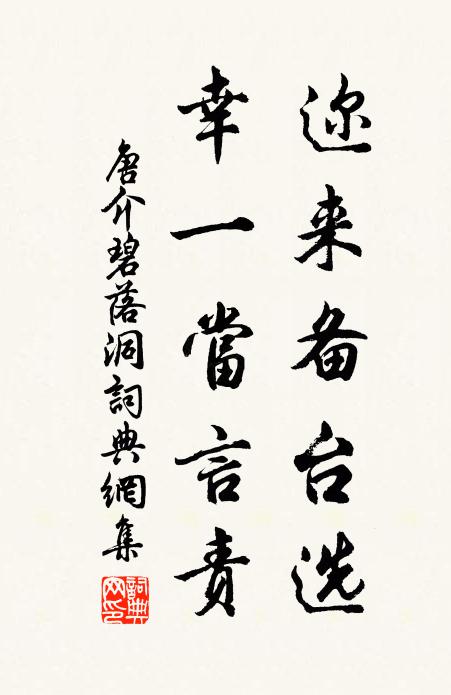 迩来备台选
幸一當言责
唐介碧落洞詞典網集
詞典网印